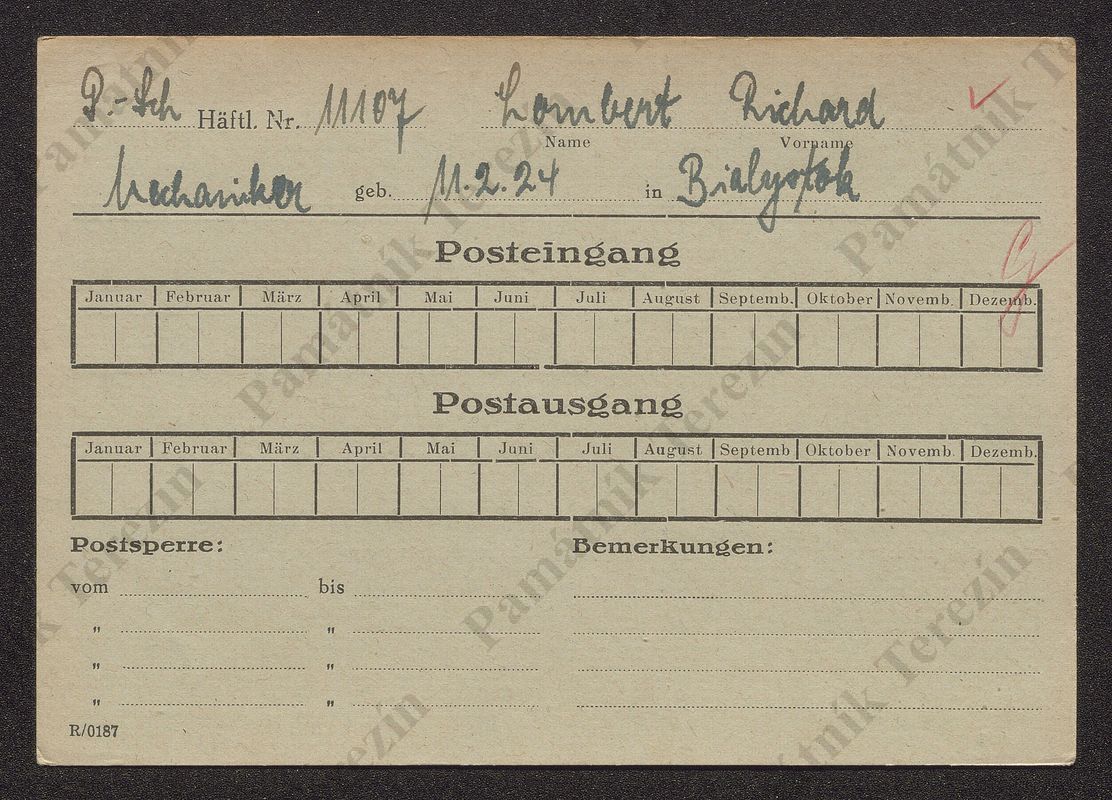 P.-Sch Häftl. Nr. 11107 Lombert Richard
Name Vorname
Mechaniker geb. 11.2.24 in Bialystok
Posteingang
Januar Februar März April Mai Juni Juli August Septemb. Oktober Novemb. Dezemb.
Postausgang
Januar Februar März April Mai Juni Juli August Septemb Oktober Novemb. Dezemb.
Postsperre: Bemerkungen:
vom bis
" "
" "
" "
R/0187
Památník Terezín